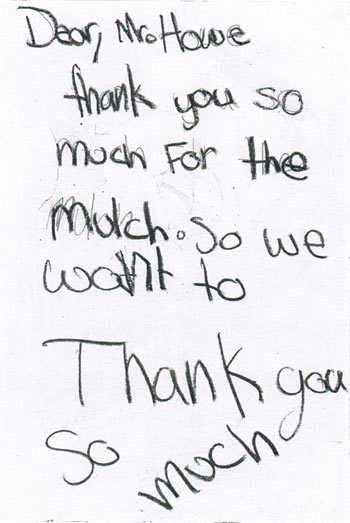 Dear, Mr. Howe
thank you so
much For the
mulch. So we
want to
Thank you
So much